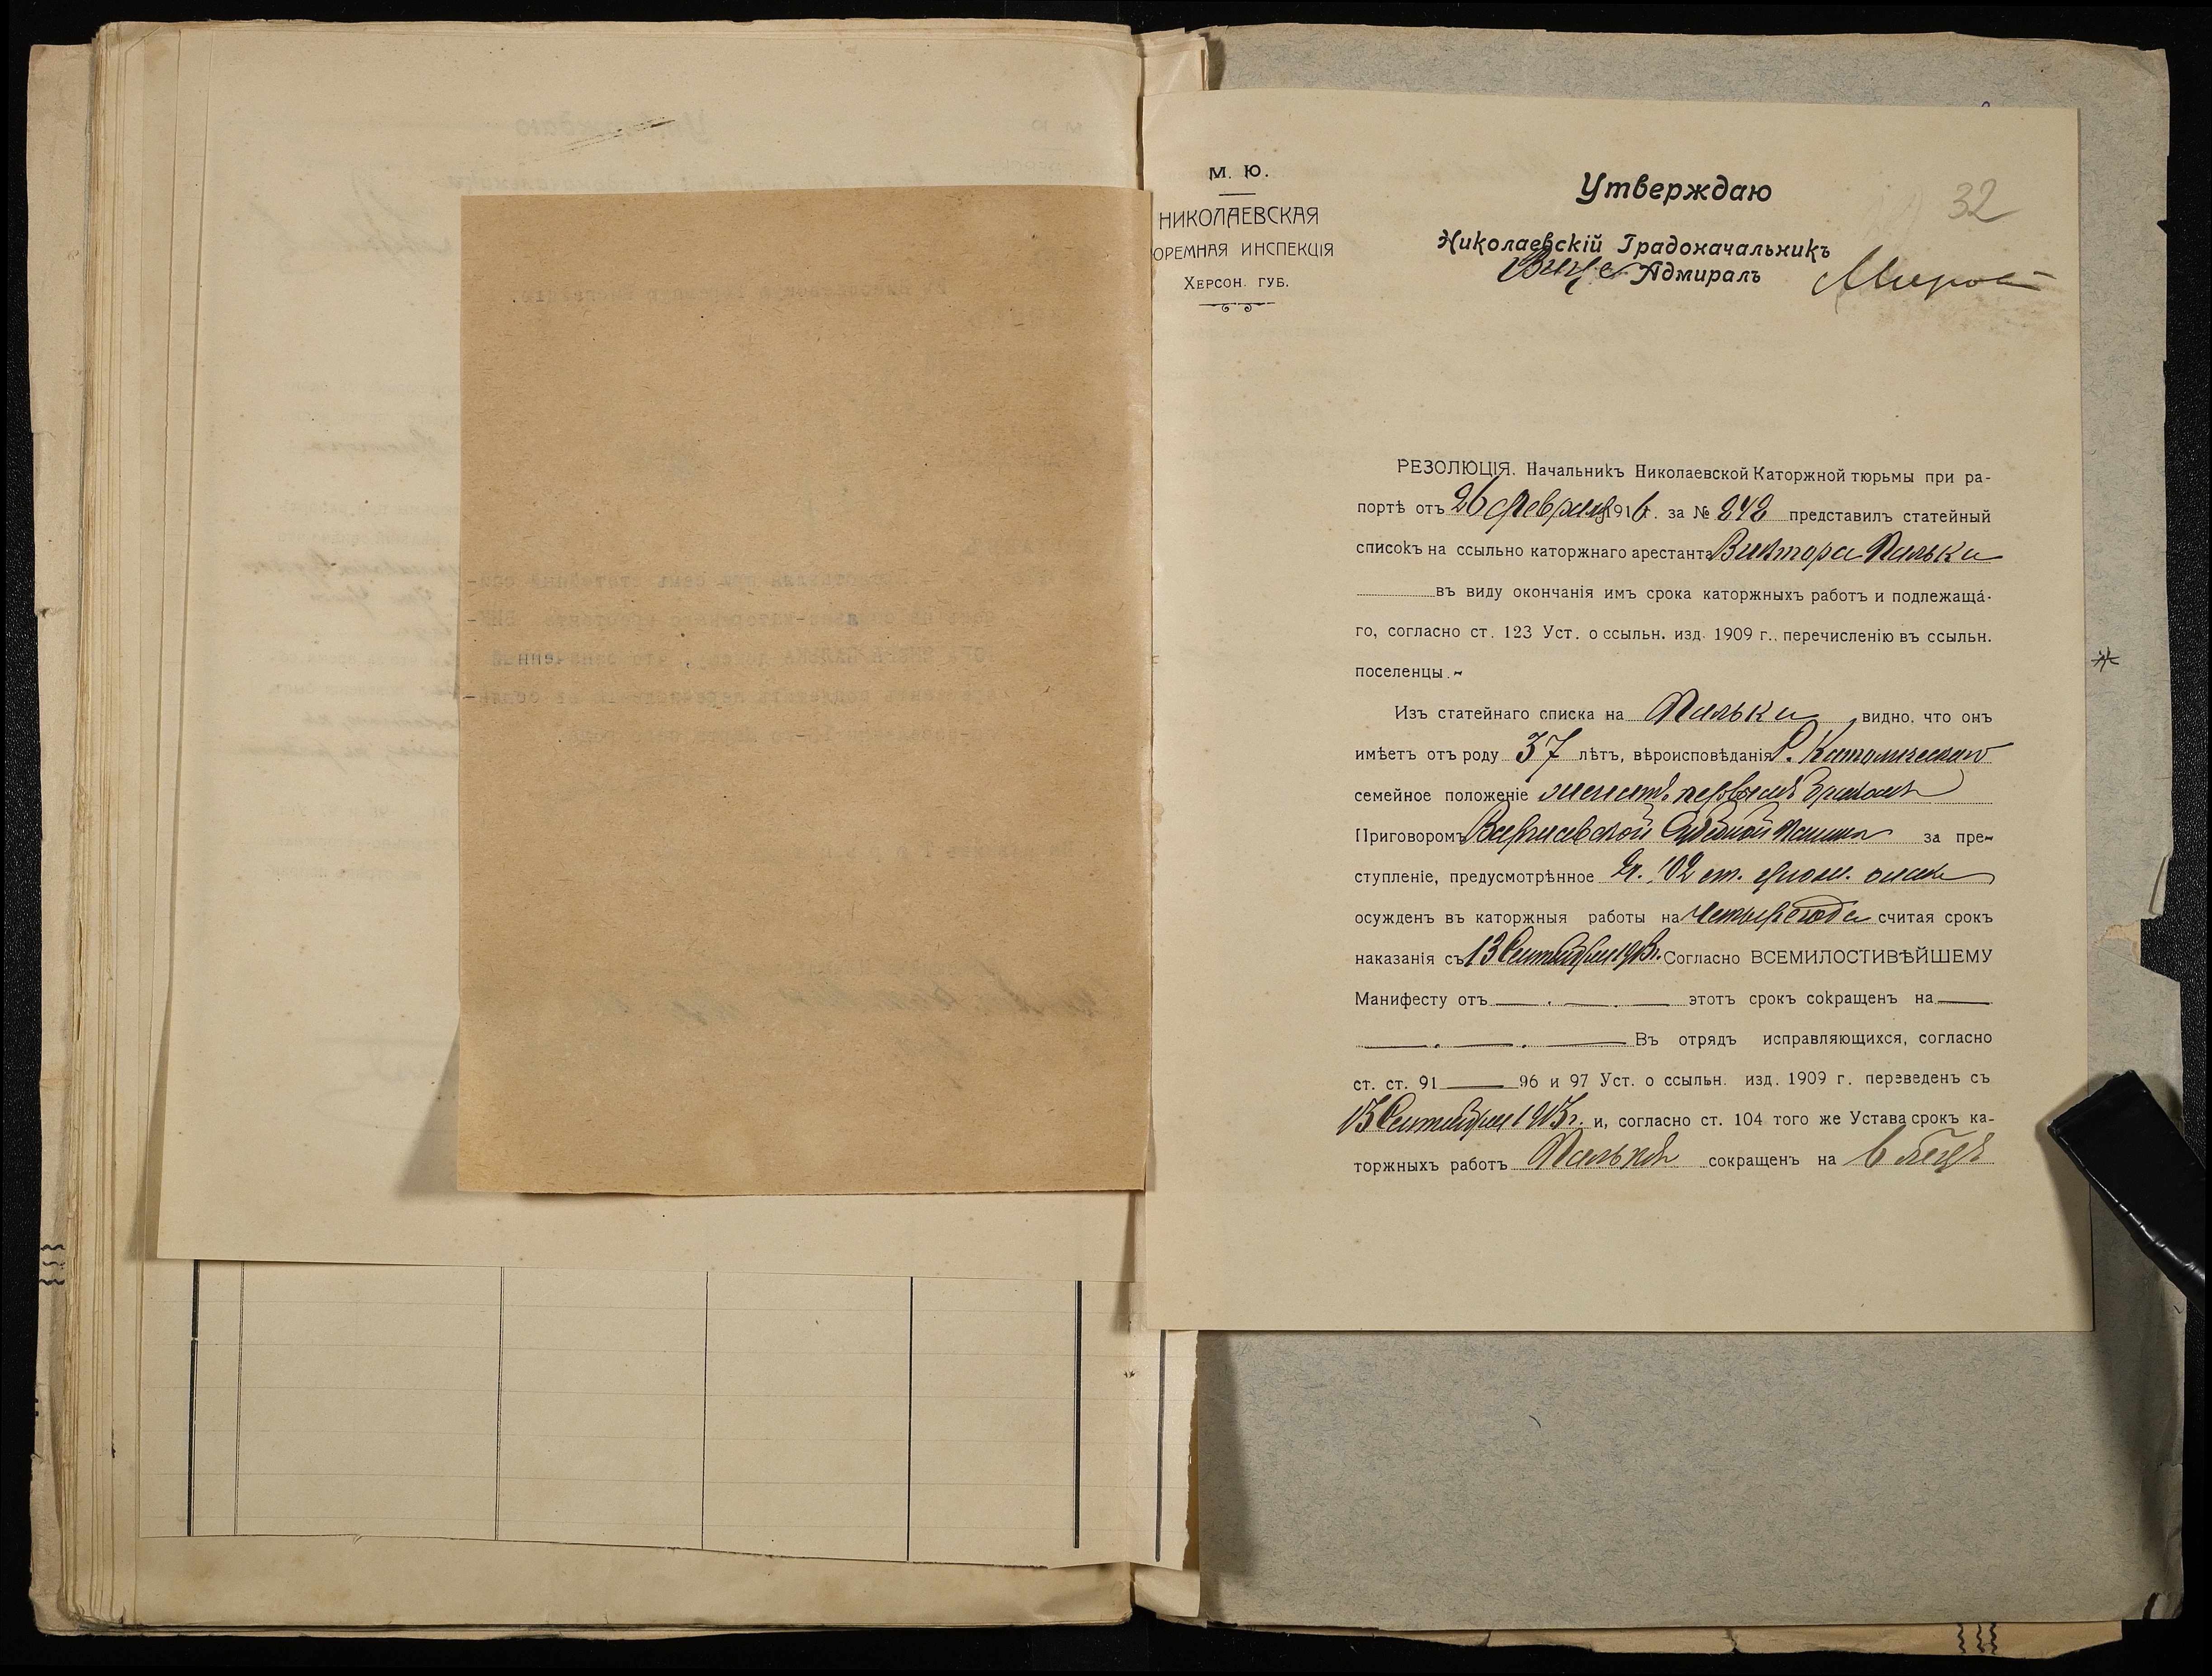 М. Ю.
НИКОЛАЕВСКАЯ
ЮРЕМНАЯ ИНСПЕКЦІЯ
ХЕРСОН. ГУБ.
Утверждаю
32
Николаевскій Градоначальникъ
Вице Адмиралъ
РЕЗОЛЮЦІЯ. Начальникъ Николаевской Каторжной тюрьмы при ра-
портѣ отъ 26 февраля 1916 г. за № 242 представилъ статейный
списокъ на ссыльно каторжнаго арестанта Виктора Палька
въ виду окончанія имъ срока каторжныхъ работъ и подлежаща-
го, согласно ст. 123 Уст. о ссыльн. изд. 1909 г., перечисленію въ ссыльн.
поселенцы.
Изъ статейнаго списка на Палька видно, что онъ
имѣетъ отъ роду 37 лѣтъ, вѣроисповѣданія Р. Католическаго
семейное положеніе женатъ первымъ бракомъ
Приговоромъ Варшавской Судебной Палаты за пре-
ступленіе, предусмотрѣнное 2 ч. 102 ст. угол. улож.
осужденъ въ каторжныя работы на четыре года считая срокъ
наказанія съ 13 Сентября 1913 г. Согласно ВСЕМИЛОСТИВѢЙШЕМУ
Манифесту отъ этотъ срокъ сокращенъ на
Въ отрядъ исправляющихся, согласно
ст. ст. 91 96 и 97 Уст. о ссыльн. изд. 1909 г. переведенъ съ
Сентября г. и, согласно ст. 104 того же Устава срокъ ка-
торжныхъ работъ Пальку сокращенъ на